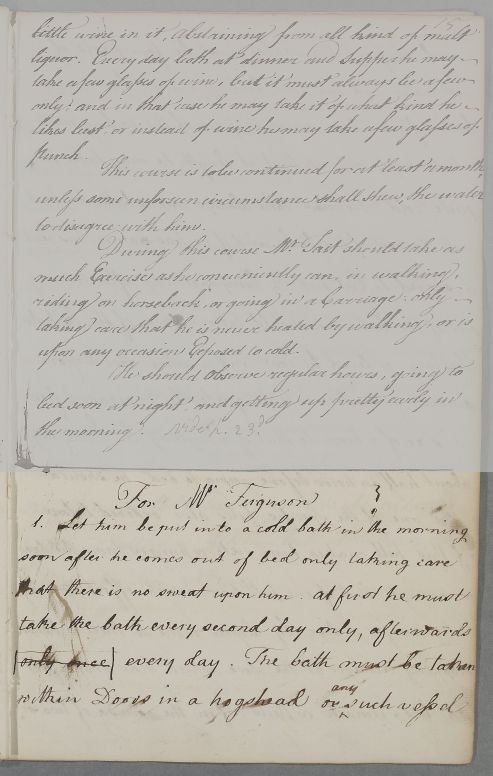 little wine in it, abstaining from all kind of malt
liquor. Every day both at dinner and Supper he may
take a few glaſses of wine, but it must always be a few
only: and in that case he may take it of what kind he
likes best: or instead of wine he may take a few glaſses of
punch.
This course is to be continued for at least a month
unleſs some unforseen circumstance shall shew, the water
to disagree with him.
During this course Mr. Tait should take as
much Exercise as he conveniently can, in walking,
riding on horseback, or going in a Carriage: only
taking care that he is never heated by walking; or is
upon any occasion Exposed to cold.
He should observe regular hours, going to
bed soon at night, and getting up pretty early in
the morning. Vide p. 23d.
For Mr. Ferguson
1. Let him be put into a cold bath in the morning
soon after he comes out of bed only taking care
that there is no sweat upon him. at first he must
take the bath every second day only, afterwards
only once every day. The bath must be taken
within Doors in a hogshead or any such veſsel